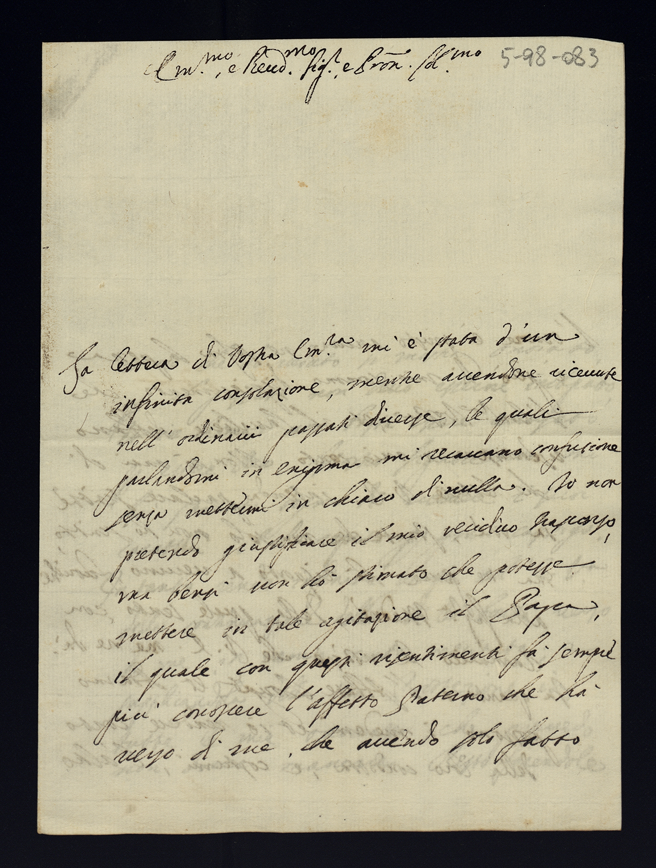 Em.mo, e Reud.mo Sig.r, e Pron. Col.mo 5-98-083
La lettera di Vostra Em.za mi è stata d'un
infinita consolazione, mentre avendone ricevute
nell'ordinarii passati diverse, le quali
parlandomi in enigma mi recavano confusione
senza mettermi in chiaro di nulla. Io non
pretendo giustificare il mio recidivo trascorso,
ma bensì non hò stimato che potesse
mettere in tale agitazione il Papa,
il quale con questi risentimenti fà sempre
più conoscere l'affetto Paterno che hà
verso di me, che avendo solo fatto